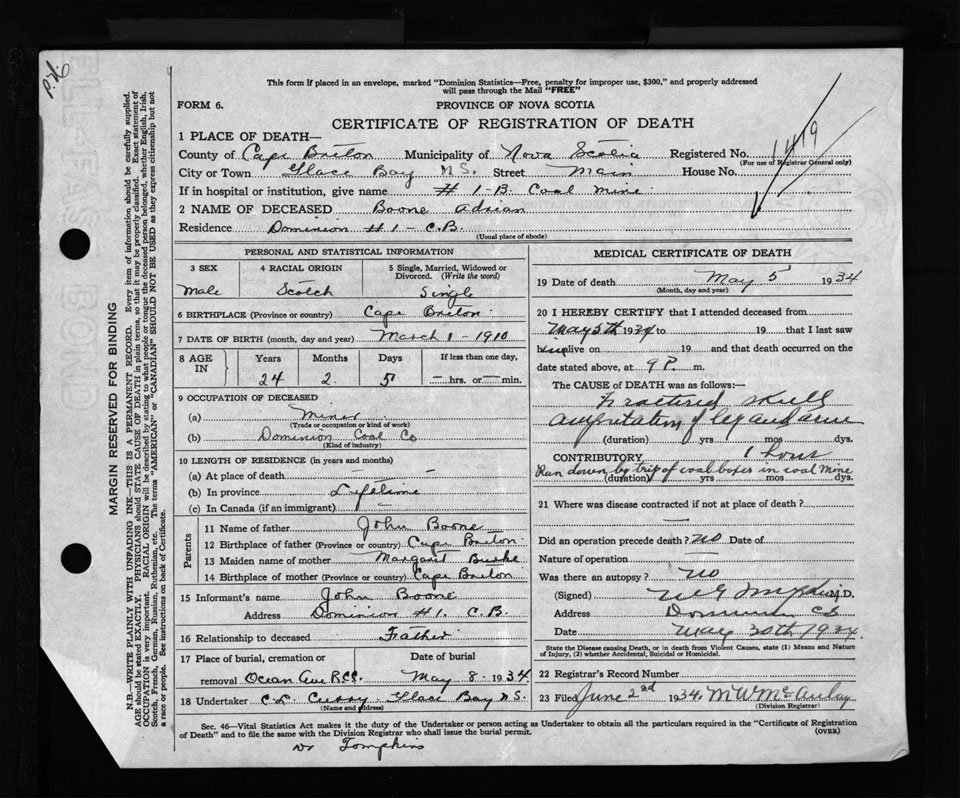 P.V.6
This form if placed in an envelope, marked "Dominion Statistics—Free, penalty for improper use, $300," and properly addressed
will pass through the Mail "FREE"
FORM 6.
PROVINCE OF NOVA SCOTIA
CERTIFICATE OF REGISTRATION OF DEATH
1419
1 PLACE OF DEATH—
County of Cape Breton Municipality of Nova Scotia Registered No.
(For use of Registrar General only)
City or Town Glace Bay N.S. Street Main House No.
If in hospital or institution, give name # 1-B Coal Mine
2 NAME OF DECEASED Boone Adrian
Residence Dominion #1 - C.B.
(Usual place of abode)
MARGIN RESERVED FOR BINDING
N.B.—WRITE PLAINLY WITH UNFADING INK—THIS IS A PERMANENT RECORD. Every item of information should be carefully supplied.
AGE should be stated EXACTLY. PHYSICIANS should STATE CAUSE OF DEATH in plain terms, so that it may be properly classified. Exact statement of
OCCUPATION is very important. RACIAL ORIGIN will be described by stating to what people or tongue the deceased person belonged, whether English, Irish,
Scotch, French, German, Russian, Ruthenian, etc. The terms "AMERICAN" or "CANADIAN" SHOULD NOT BE USED as they express citizenship but not
a race or people. See instructions on back of Certificate.
PERSONAL AND STATISTICAL INFORMATION
3 SEX 4 RACIAL ORIGIN 5 Single, Married, Widowed or
Divorced. (Write the word)
Male Scotch Single
6 BIRTHPLACE (Province or country) Cape Breton
7 DATE OF BIRTH (month, day and year) March 1 - 1910
8 AGE IN Years Months Days If less than one day,
24 2 5 — hrs. or — min.
9 OCCUPATION OF DECEASED
(a) Miner
(Trade or occupation or kind of work)
(b) Dominion Coal Co
(Kind of industry)
10 LENGTH OF RESIDENCE (in years and months)
(a) At place of death — —
(b) In province Lifetime
(c) In Canada (if an immigrant) —
Parents
11 Name of father John Boone
12 Birthplace of father (Province or country) Cape Breton
13 Maiden name of mother Margaret Burke
14 Birthplace of mother (Province or country) Cape Breton
15 Informant's name John Boone
Address Dominion #1. C.B.
16 Relationship to deceased Father
17 Place of burial, cremation or Date of burial
removal Ocean Ave R.C. May 8 - 1934
18 Undertaker C L Curry Glace Bay N.S.
(Name and address)
MEDICAL CERTIFICATE OF DEATH
19 Date of death May 5 1934
(Month, day and year)
20 I HEREBY CERTIFY that I attended deceased from
May 5th 1934 to 19 that I last saw
him alive on 19 and that death occurred on the
date stated above, at 9 P. m.
The CAUSE OF DEATH was as follows:—
Fractured skull
amputation of leg and arm
(duration) yrs mos dys.
CONTRIBUTORY 1 hour
Ran down by trip of coal boxes in coal mine
(duration) yrs. mos dys.
21 Where was disease contracted if not at place of death?
—
Did an operation precede death? no Date of
Nature of operation —
Was there an autopsy? no
(Signed) Tompkins M.D.
Address Dominion CB
Date May 30th 1934
State the Disease causing Death, or in death from Violent Causes, state (1) Means and Nature
of Injury, (2) whether Accidental, Suicidal or Homicidal.
22 Registrar's Record Number
23 Filed June 2nd 1934. M W McAulay
(Division Registrar)
Sec. 46—Vital Statistics Act makes it the duty of the Undertaker or person acting as Undertaker to obtain all the particulars required in the "Certificate of Registration
of Death" and to file the same with the Division Registrar who shall issue the burial permit.
(OVER)
Dr Tompkins